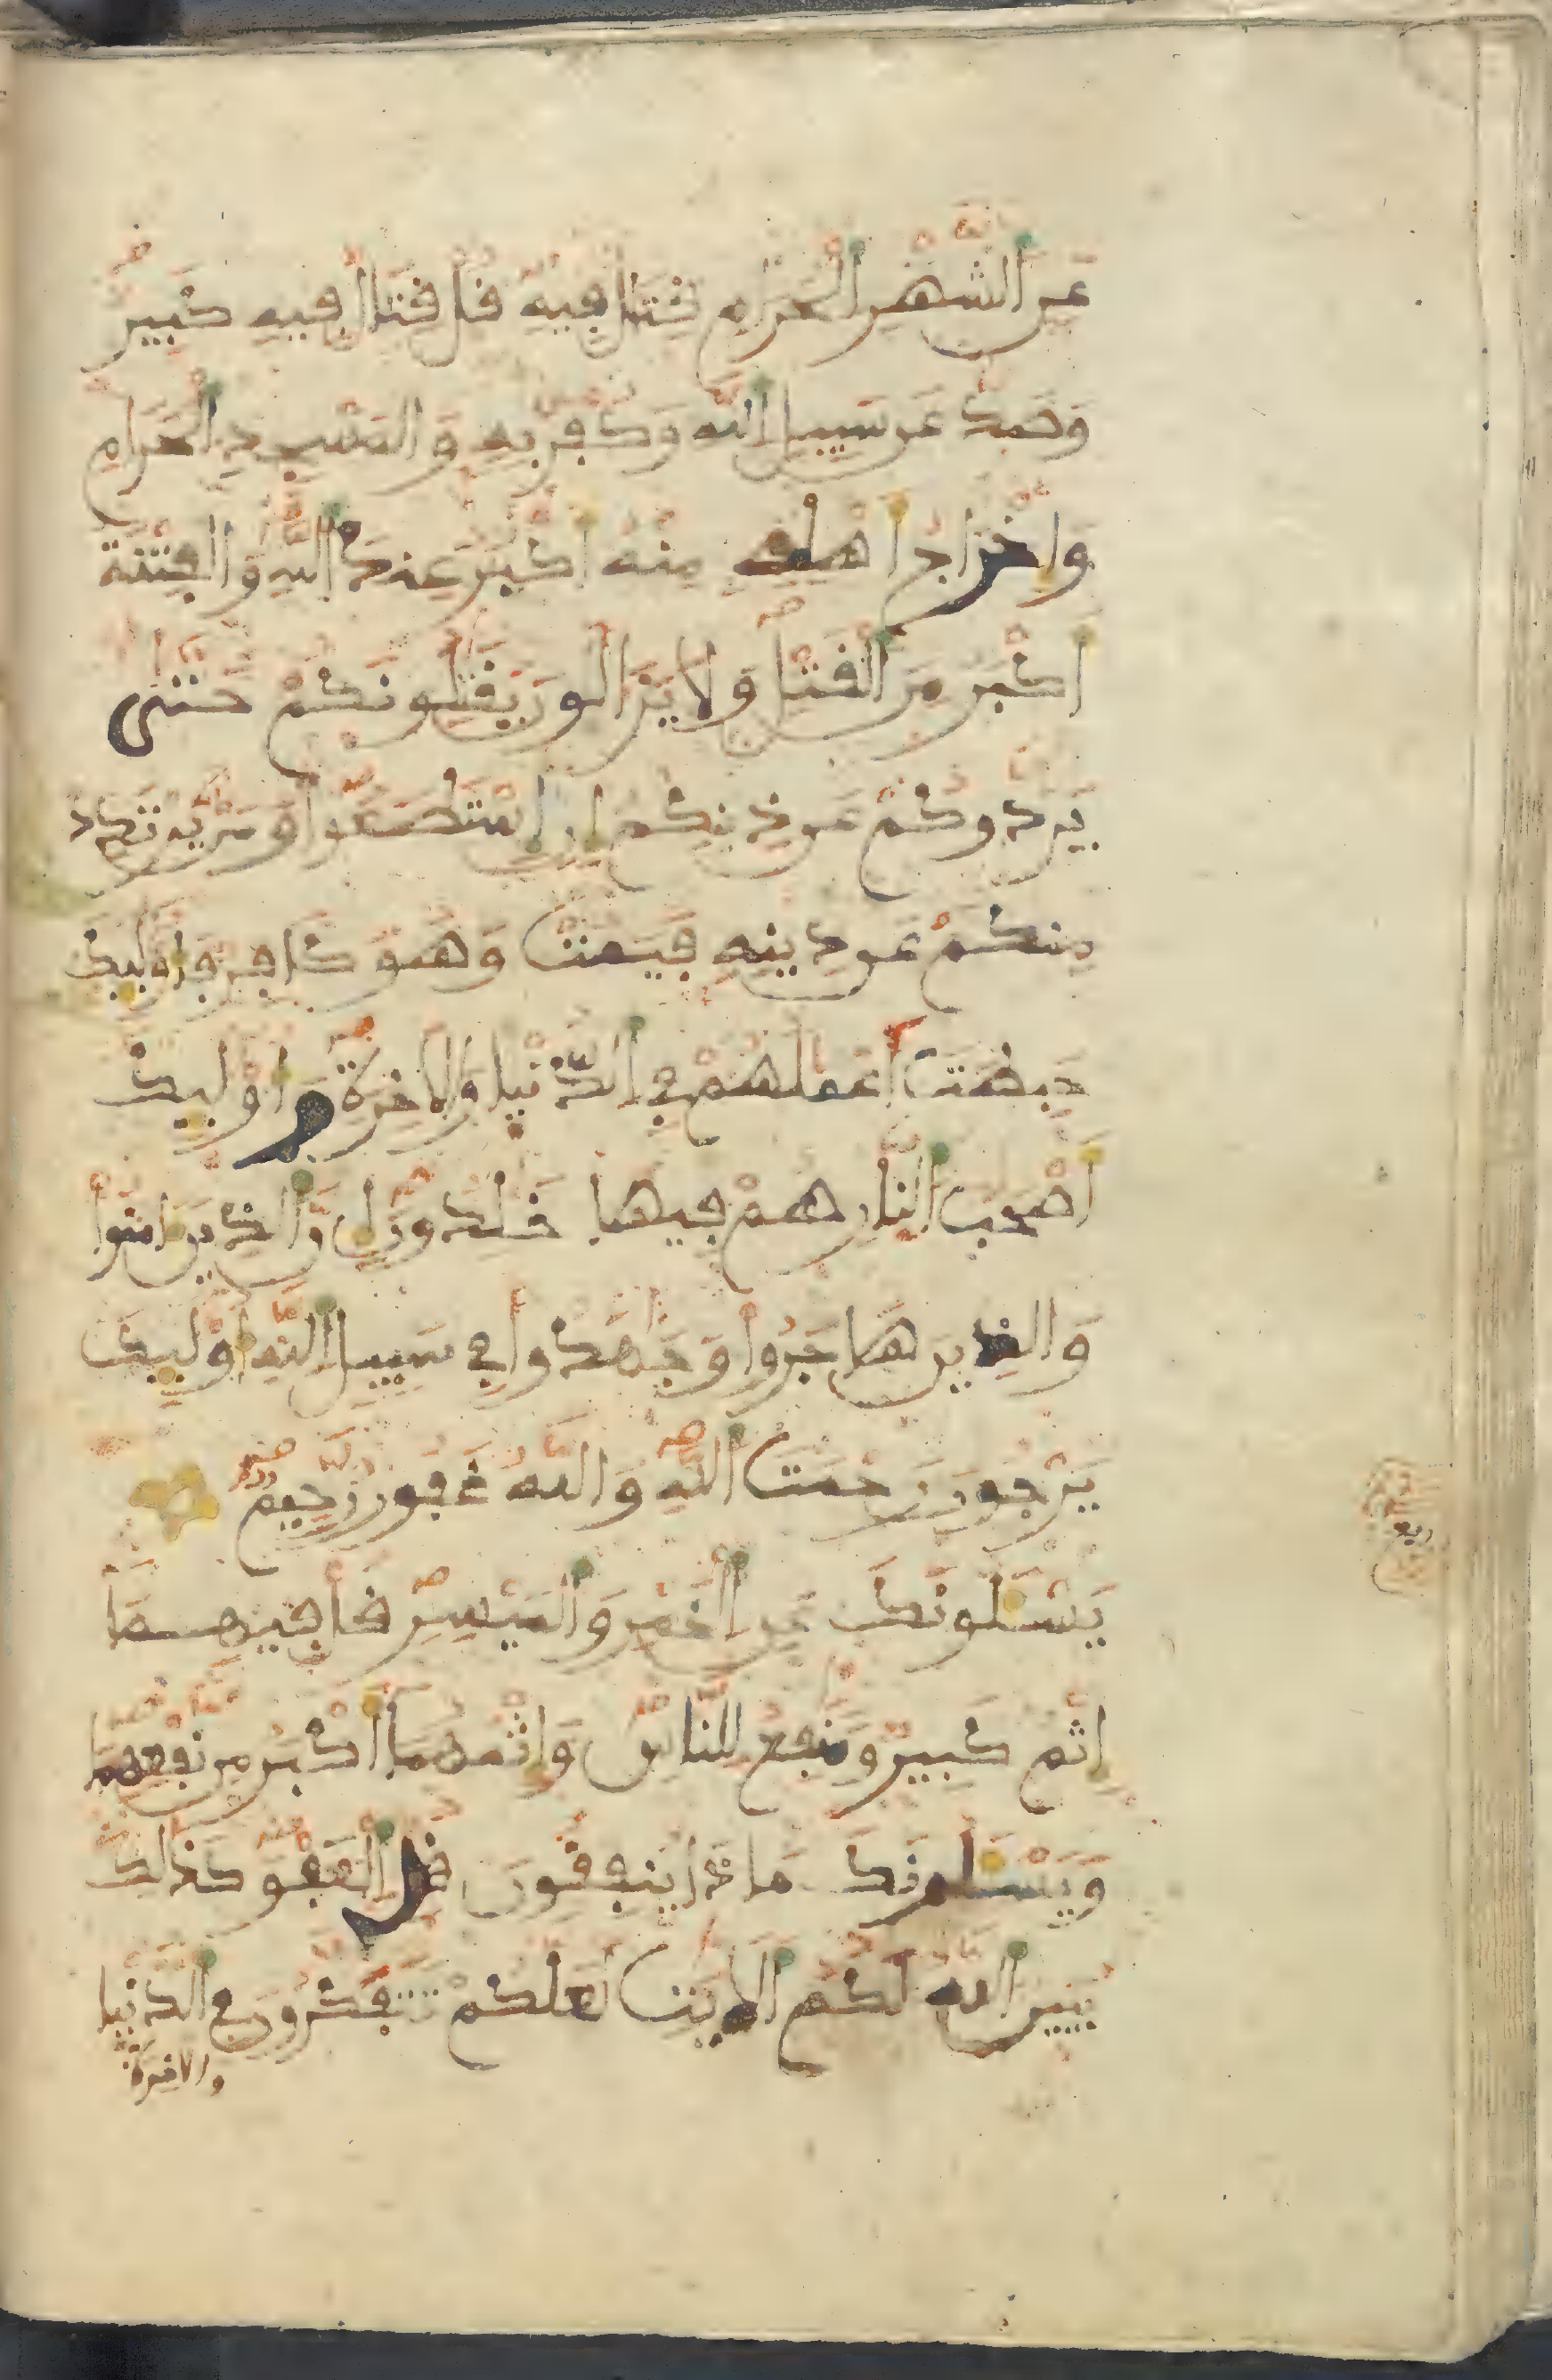 عن الشهر الحرام قتال فيه قل قتال فيه كبير
وصد عن سبيل الله وكفر به والمسجد الحرام
واخراج اهله منه اكبر عند الله والفتنة
اكبر من القتل ولا يزالون يقتلونكم حتى
يردوكم عن دينكم ان استطعوا ومن يرتدد
منكم عن دينه فيمت وهو كافر فاوليك
حبطت اعملهم في الدنيا والاخرة واوليك
اصحب النار هم فيها خلدون ان الذين امنوا
والذين هاجروا وجهدوا في سبيل الله اوليك
يرجون رحمت الله والله غفور رحيم
يسلونك عن الخمر والميسر قل فيهما
اثم كبير ومنفع للناس واثمهما اكبر من نفعهما
ويسلونك ماذا ينفقون قل العفو كذلك
يبين الله لكم الايت لعلكم تتفكرون في الدنيا
والاخرة
ربع